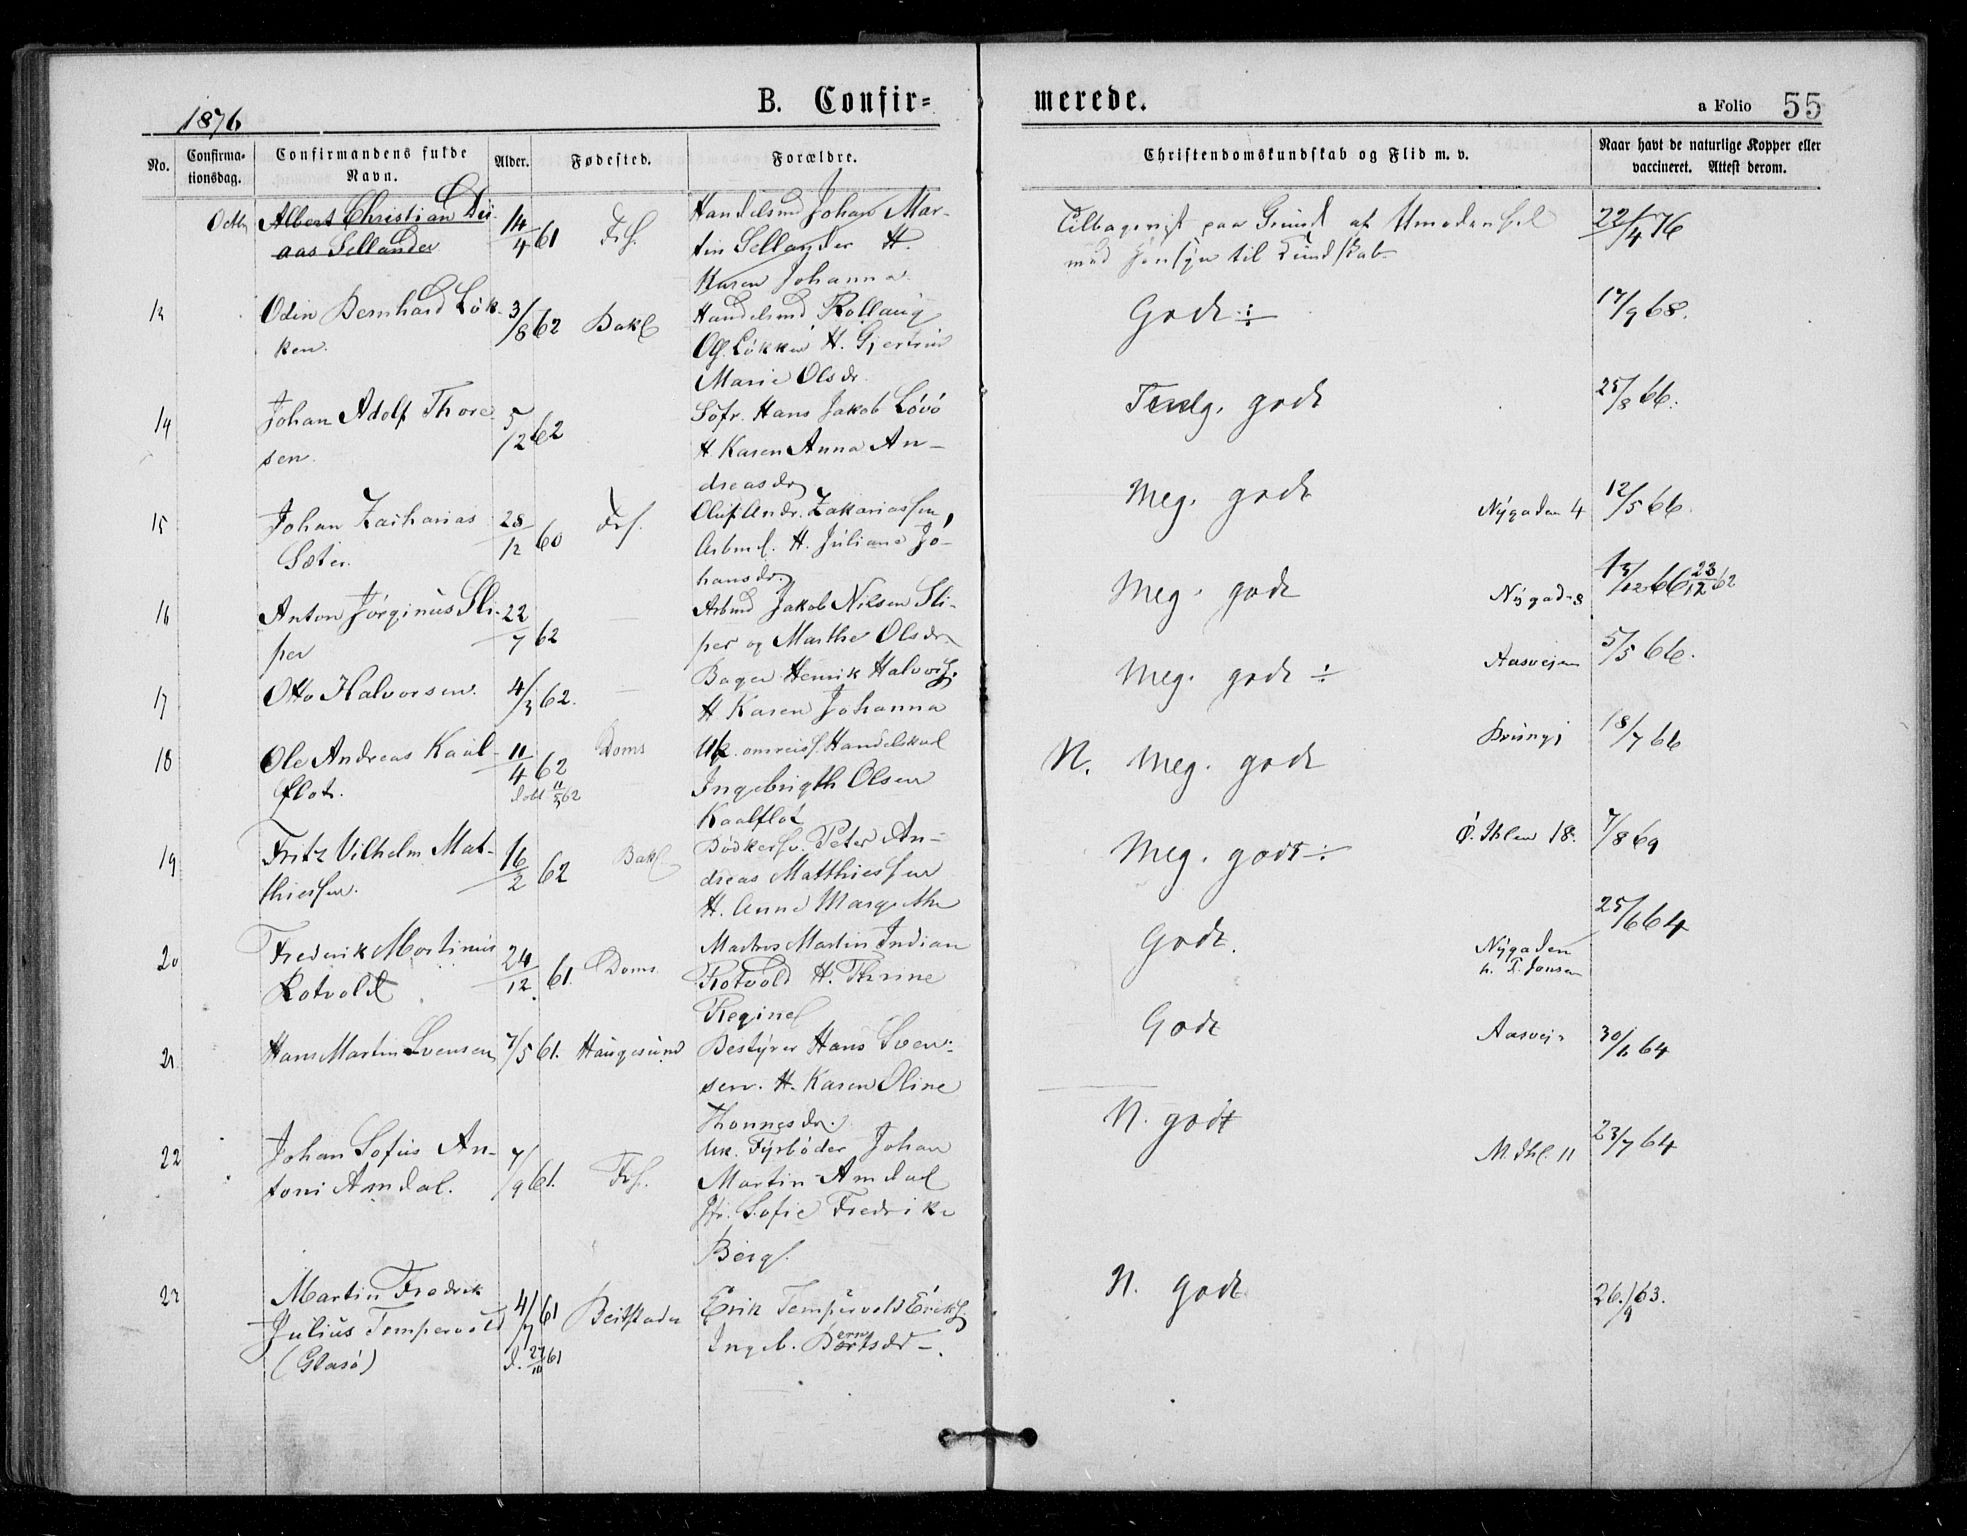 1876
B. Confir=
merede.
a Folio 55
No.
Confirma-
tionsdag.
Confirmandens fulde
Navn.
Alder.
Fødested.
Forældre.
Christendomskundskab og Flid m. v.
Naar havt de naturlige Kopper eller
vaccineret. Attest derom.
Octbr Albert Christian Dü-
aas Sellander
14/4 61
Frs.
Handelsmd Johan Mar-
tin Sellander H.
Karen Johanna
Tilbagevist paa Grund af Umodenhed
med Hensyn til Kundskab
22/4 76
13
Odin Bernhard Løk-
ken.
3/8 62
Bakl
Handelsmd Rollaug
Løkken H. Gjertrud
Marie Olsdr.
Godt ÷
17/9 68.
14
Johan Adolf Thore
sen.
5/12 62
Hans Jakob Løvø
H. Karen Anna An-
dreasdr
Temlg. godt
25/8 66.
15
Johan Zacharias
Sæter.
28/12 60
Frs.
Oluf Andr. Zakariassen,
Arbmd. H. Juliane Jo-
hansdr.
Meg. godt
Nygaden 4
12/5 66.
16
Anton Jørginus Sli-
per
22/7 62
—
Arbmd Jakob Nilsen Sli-
per og Marthe Olsdr
Meg. godt
Nygad. 8
13/12 66 23/12 62
17
Otto Halvorsen.
4/3 62.
—
Bager Henrik Halvors.
H Karen Johanna
Meg. godt ÷
Aasvejen
5/5 66.
18
Ole Andreas Kaal-
flot.
11/4 62
Doms
Uk. omreis. Handelskarl
Ingebrigth Olsen
Kaalflot
N. Meg. godt
18/7 66
19
Fritz Vilhelm Mat-
thiessen.
16/2 62
Bakl
Bødkersv. Peter An-
dreas Matthiessen
H. Anne Margrethe
Meg. godt ÷
Ø. Ihlen 18.
7/8 69
20
Frederik Martinus
Rotvold
24/12 61.
Doms.
Matros Martin Indian
Rotvold H. Thrine
Regine
Godt.
Nygaden
h. T. Jonsen
25/6 64
21
Hans Martin Svensen
7/5 61.
Haugesund
Bestyrer Hans Sven-
sen. H. Karen Oline
Thonnesdr.
Godt
Aasvej.
30/6 64
22
Johan Sofus An-
toni Amdal.
7/9 61.
Frs.
Uk. Fyrbøder Johan
Martin Amdal
Sofie Fredrike
Berg.
N. godt
M. Ihl. 11
23/7 64
23
Martin Fredrik
Julius Tempervold
(Glasø)
4/7 61
d. 27/10 61
Beitstaden
Erik Tempervold Eriks.
Ingeb. Berntsdr.
N. godt
26./9 63.